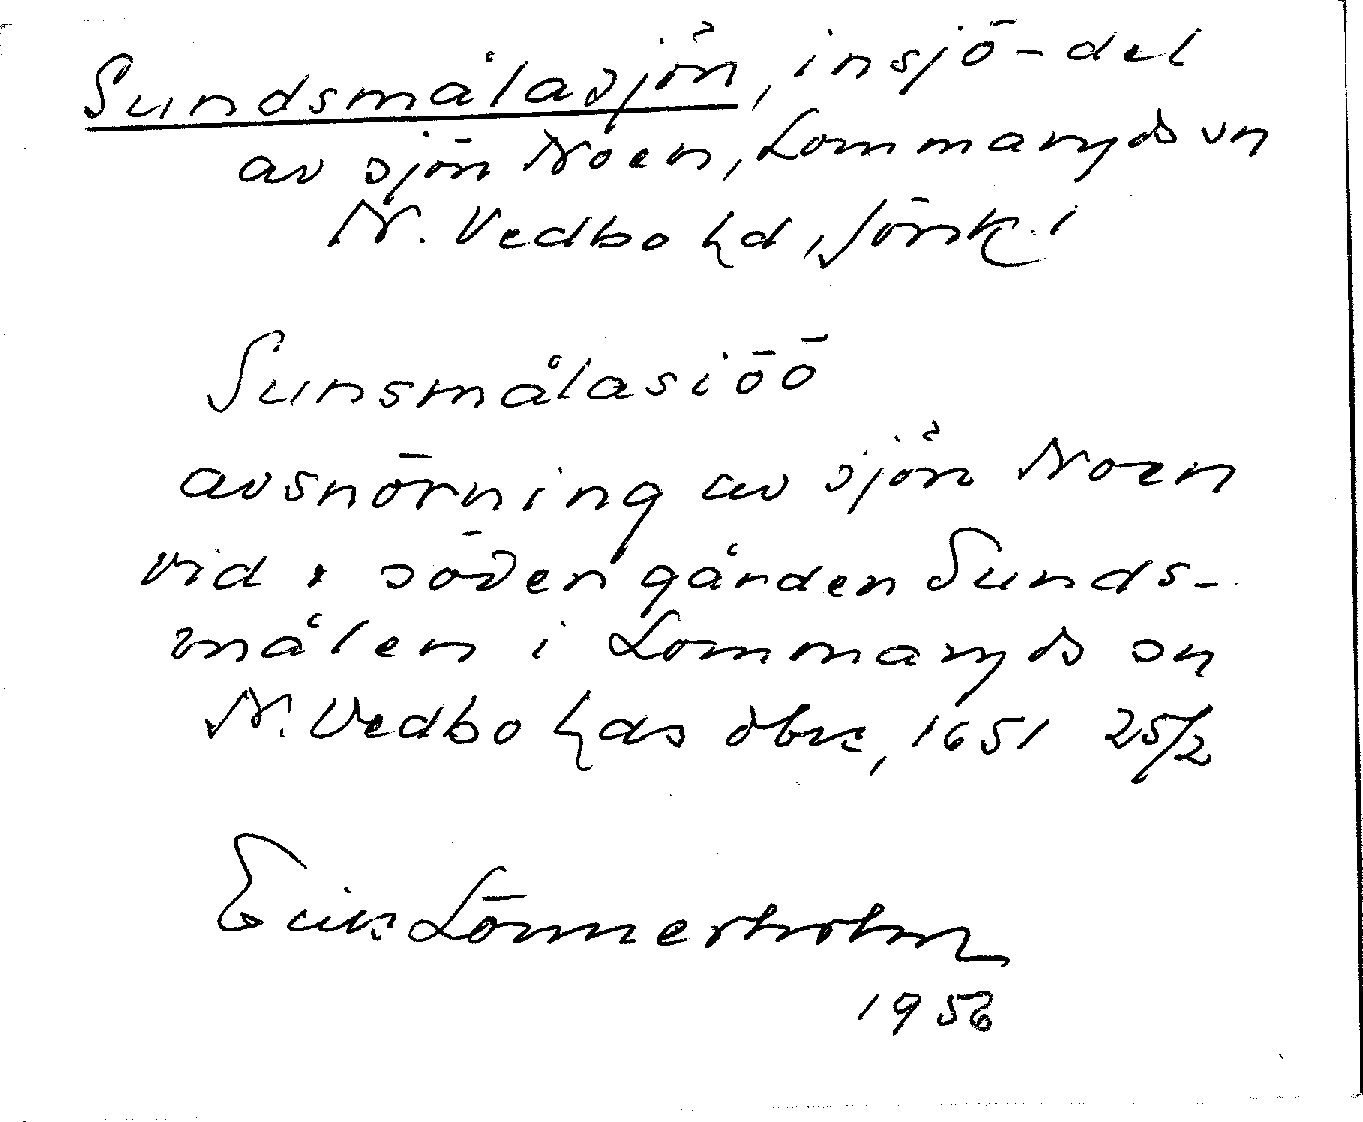 Sundsmålasjön, insjö-del
av sjön Noen, Lommaryds sn
N. Vedbo hd, Jönk. l
Sunsmålasiöö
avsnörning av sjön Noen
vid söder gården Sunds-
målen i Lommaryds sn
N. Vedbo hds dbk, 1651 25/2
Erik Lönnerholm
1956